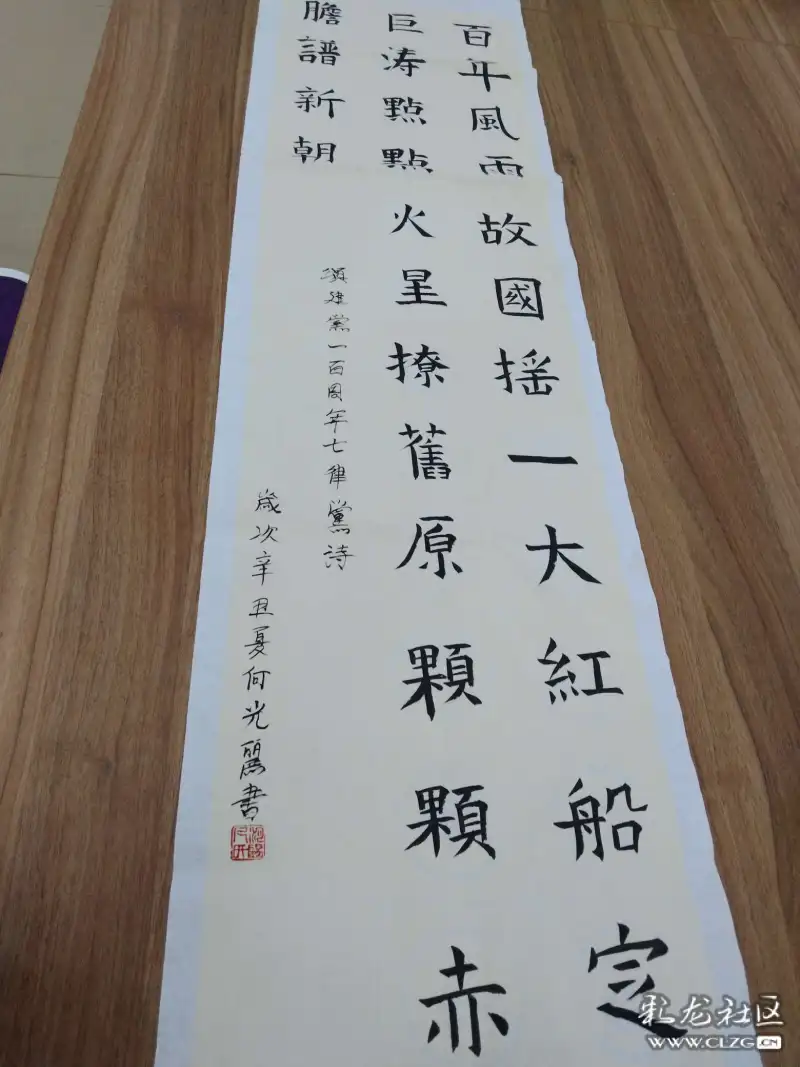 百年風雨故國摇一大紅船定
巨涛點點火星撩舊原顆顆赤
膽譜新朝
頌建黨一百周年七律黨詩
歲次辛丑夏何光麗書
彩龙社区
WWW.CLZG.CN